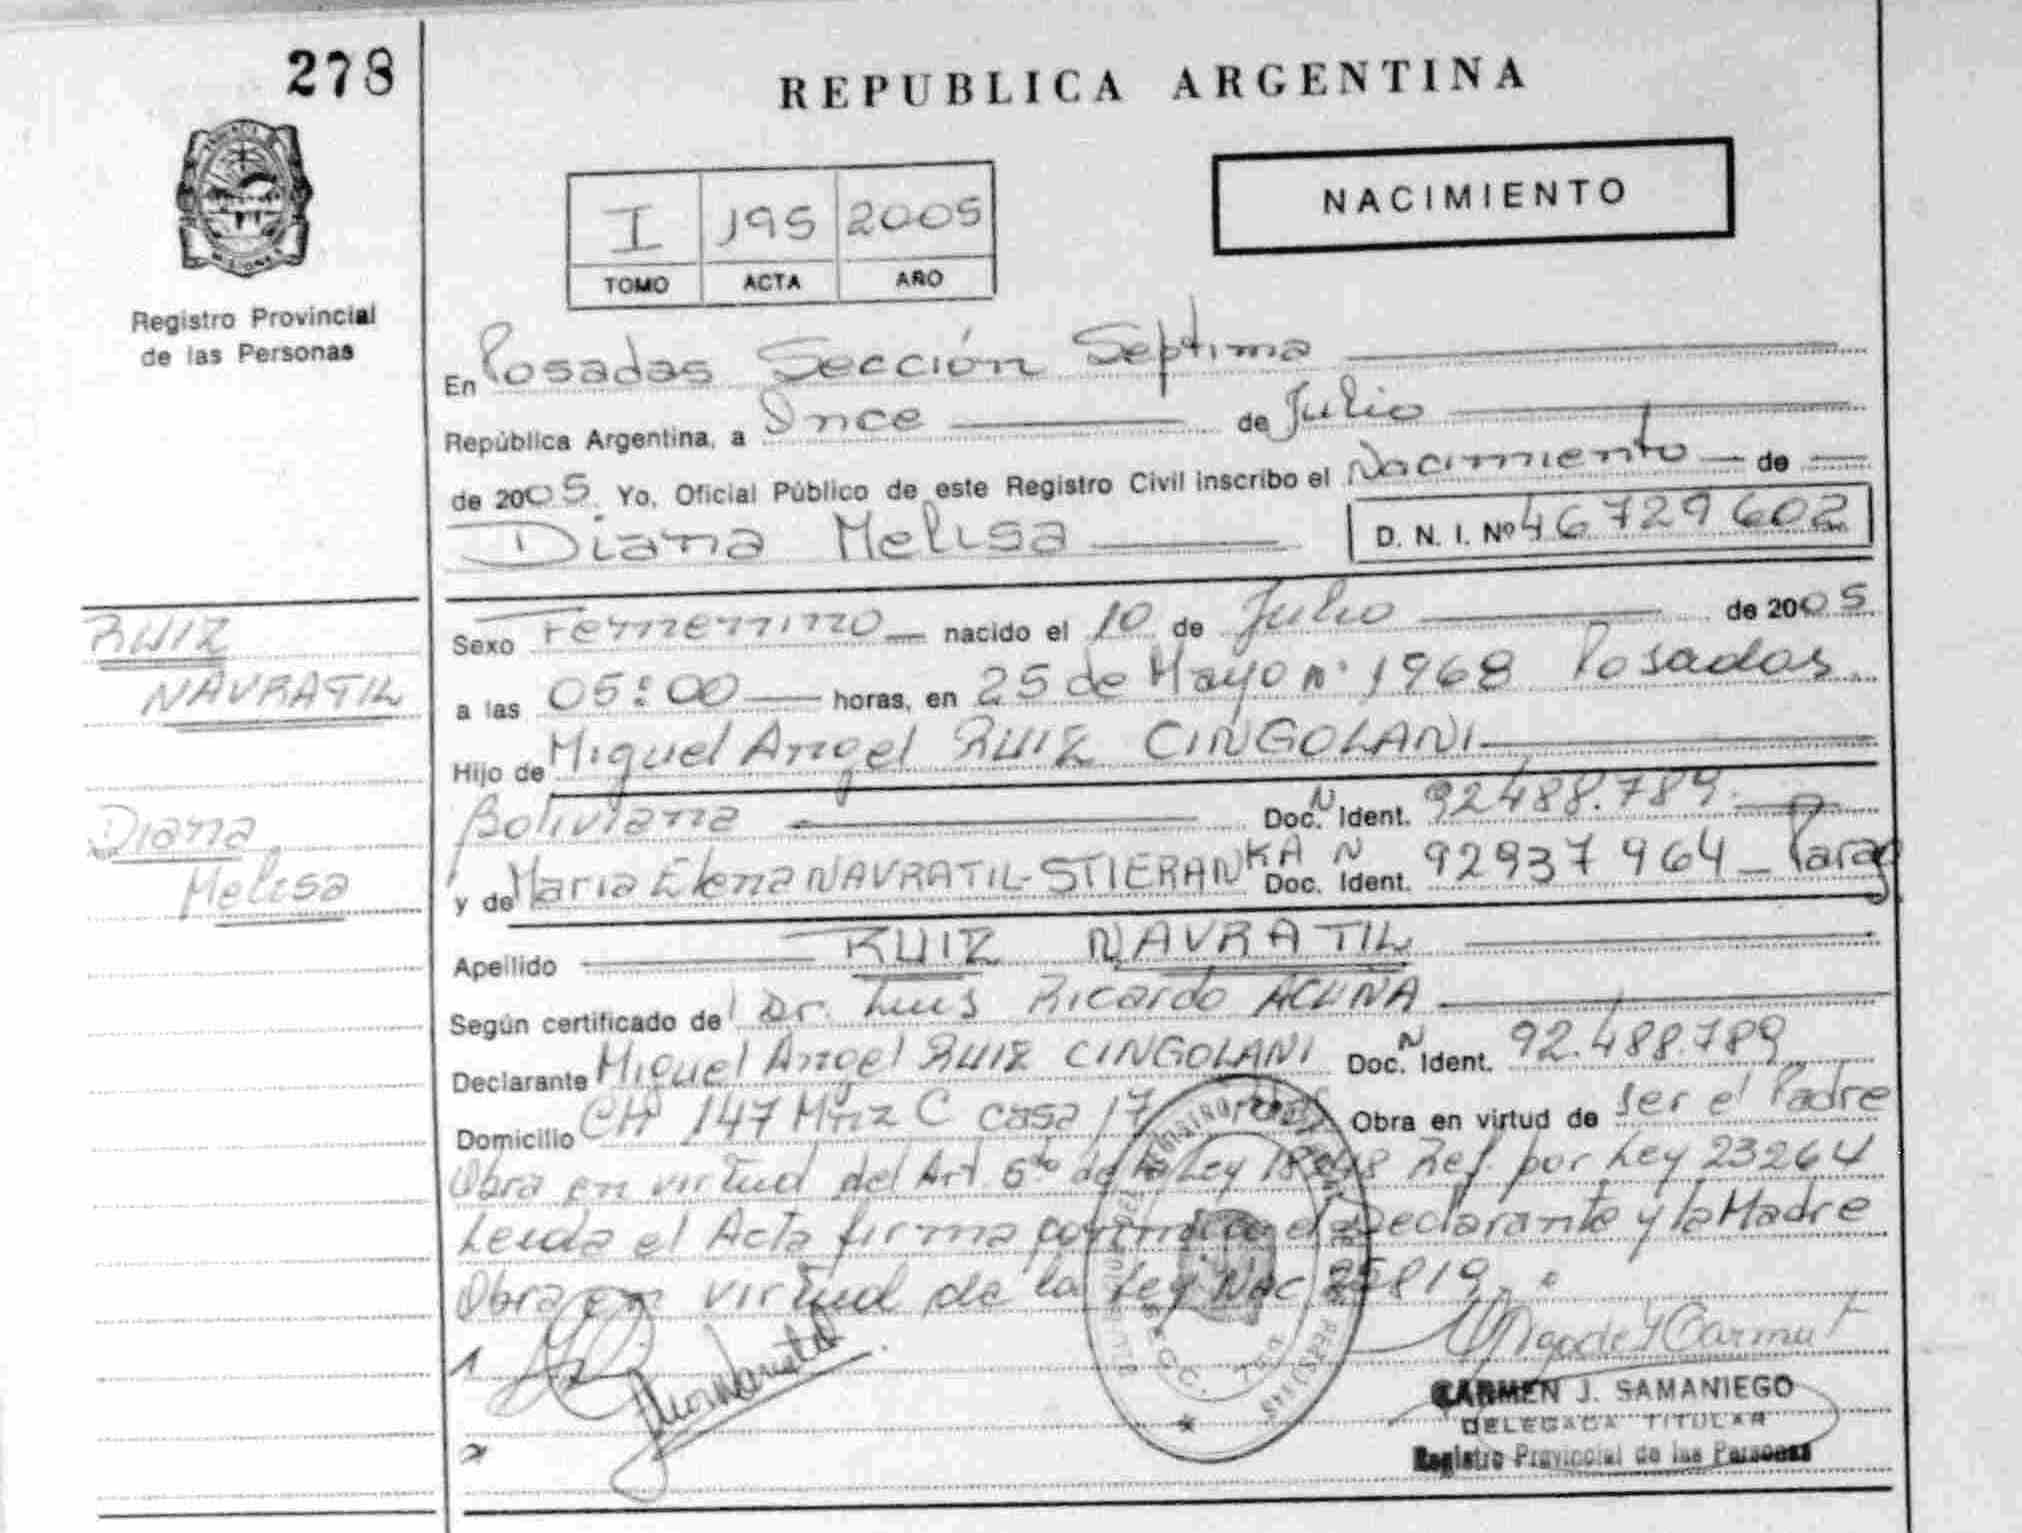 278
REPUBLICA ARGENTINA
NACIMIENTO
I 195 2005
TOMO ACTA AÑO
Registro Provincial
de las Personas
En Posadas Sección Septima
República Argentina, a Once de Julio
de 2005. Yo, Oficial Público de este Registro Civil inscribo el Nacimiento de
Diana Melisa D. N. I. Nº 46729602
RUIZ
NAVRATIL
Diana
Melisa
Sexo Femenino nacido el 10 de Julio de 2005
a las 05:00 horas, en 25 de Mayo nº 1968 Posadas.
Hijo de Miguel Angel RUIZ CINGOLANI
Boliviana Doc. N Ident. 92488.789.
y de Maria Elena NAVRATIL-STIERANKA Doc. N Ident. 92937964 - Parag
Apellido RUIZ NAVRATIL
Según certificado del Dr. Luis Ricardo ACUÑA
Declarante Miguel Angel RUIZ CINGOLANI Doc. N Ident. 92.488.789
Domicilio CH 147 Mnz C casa 17 Obra en virtud de ser el Padre
Obra en virtud del Art. 5to de la Ley Ref. por Ley 23264
Leida el Acta firma conmigo el Declarante y la Madre
Obra en virtud de la Ley Nac 25819.-
1
2
CARMEN J. SAMANIEGO
DELEGADA TITULAR
Registro Provincial de las Personas